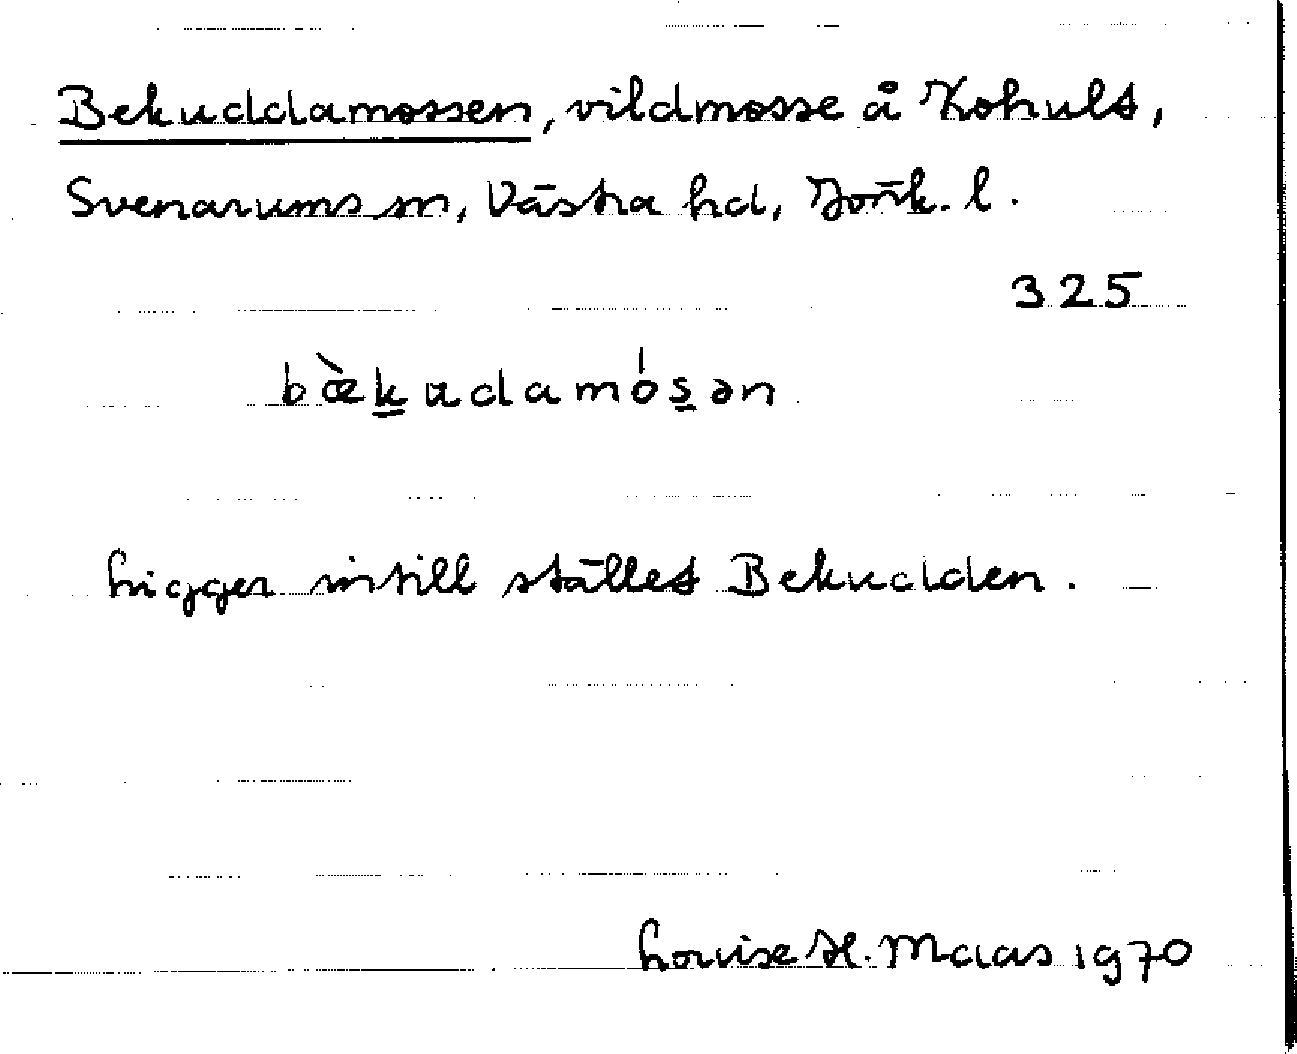 Bekuddamossen, vildmosse å Kohult,
Svenarums sn, Västra hd, Jönk. l.
325
bæ̀k̲adamós̲ən
Ligger intill stället Bekudden.
Louise H. Maas 1970